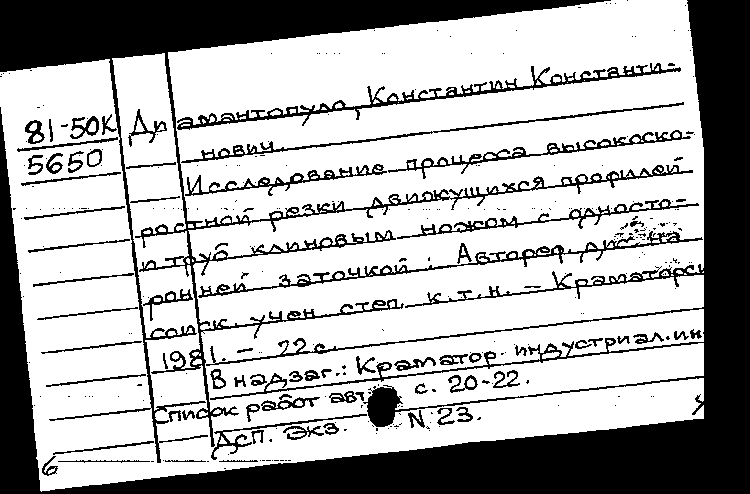 81-50К
5650
Диамантопуло, Константин Константи-
нович.
Исследование процесса высокоско-
ростной резки движущихся профилей
и труб клиновым ножом с односто-
ронней заточкой: Автореф. дис на
соиск. учен. степ. к.т.н. - Краматорск
1981. - 22 с.
В надзаг.: Краматор. индустриал. ин-
Список работ авт с. 20-22.
ДсП. Экз. N 23.
6